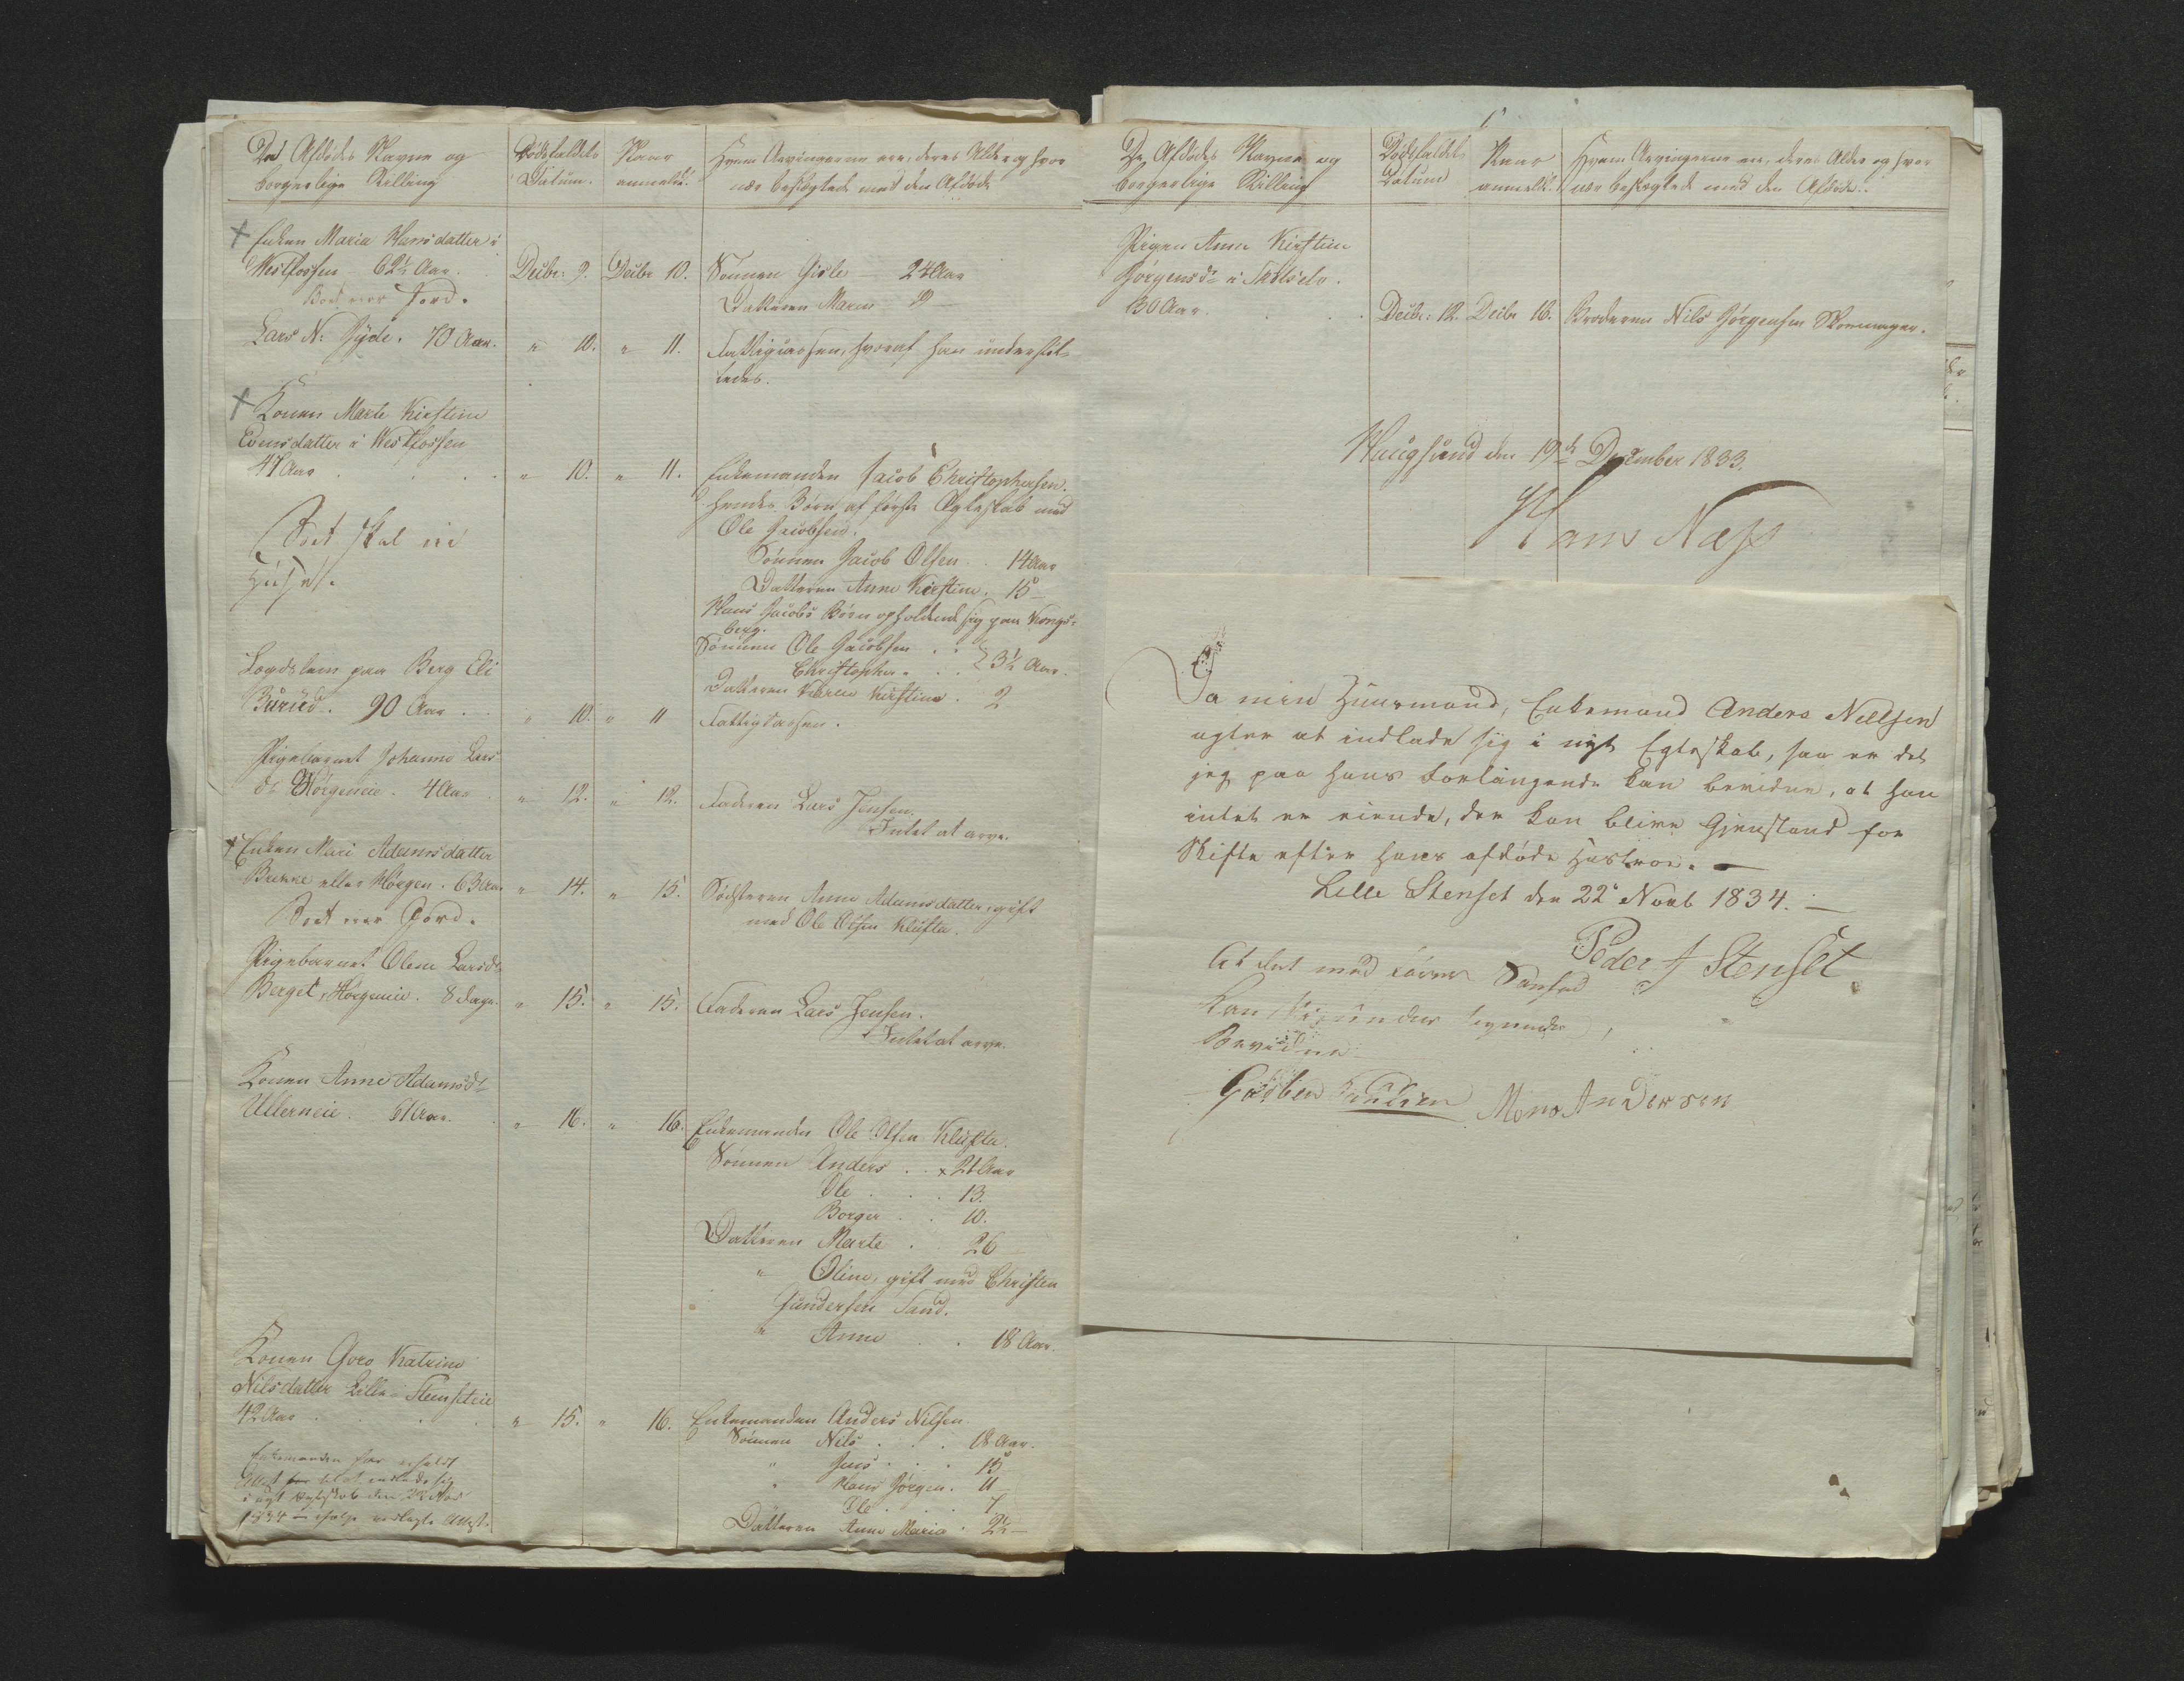 Des Afdødes Navne og
borgerlige Stilling
Dødsfaldets
Datum.
Naar
anmeldt.
Hvem Arvingerne ere, deres Alder og hvor
nær beslægtede med den Afdøde
Enken Maria Hansdatter i
Westfossen 62½ Aar.
Boet war Jord.
Decbr: 9. Decbr 10.
Sønnen Gisle 24 Aar
Datteren Maren 19 —
Lars N: Ryde. 70 Aar. " 10. " 11. Fattigcassen, hvoraf han understøt-
tedes.
Konen Marte Kirstine
Evensdatter i Westfossen
47 Aar " 10. " 11. Enkemanden Jacob Christophersen.
hendes Børn af første Ægteskab med
Ole Jacobsen.
Sønnen Jacob Olsen. 14 Aar
Datteren Anne Kirstine. 15 —
Hans Jacobs Børn opholdende sig paa Kongs-
berg.
Sønnen Ole Jacobsen
Christopher. 3½ Aar.
Datteren Karen Kirstine. 2
Boet skal
Logdslem paa Berg Eli
Burud. 90 Aar. " 10. " 11 Fattigcassen.
Pigebarnet Johanne Lars
dr Hørgeneie. 4 Aar " 12. " 12. Faderen Lars Jensen,
Intet at arve.
Enken Mari Adamsdatter
Bække eller Hørgen. 63 Aar " 14. " 15. Södsteren Anne Adamsdatter, gift
med Ole Olsen Klufta.
Boet war Jord.
Pigebarnet Olea Larsdr
Berget, Hørgeneie. 8 Dage. " 15. " 15. Faderen Lars Jensen.
Intet at arve.
Konen Anne Adamsdr
Ullerneie. 61 Aar. " 16. " 16. Enkemanden Ole Olsen Klufta.
Sønnen Anders . . x 21 Aar
Ole . . . 13.
Borger . . 10.
Datteren Marte . 26
" Oline, gift med Christen
Gundersen Sand.
" Anne . . 18 Aar.
Konen Goro Katrine
Nilsdatter Lille-Stenseteie
42 Aar " 15. " 16. Enkemanden Anders Nilsen
Sönnen Nils . . . 18 Aar.
" Jens . . . 15
" Hans Jörgen. 11
Ole . . . 7
Datteren Anne Maria . 2½ —
Enkemanden har erholdt
Attest at indlade sig
i nyt Ægteskab den 22 Nov
1834 — ifølge vedlagte Attest.
De Afdødes Navne og
borgerlige Stilling
Dødsfaldets
Datum
Naar
anmeldt.
Hvem Arvingerne ere, deres Alder og hvor
nær beslægtede med den Afdøde.
Pigen Anne Kirstine
Jørgensdr i Skotselv.
30 Aar. Decbr: 12. Decbr 16. Broderen Nils Jørgensen Skomager.
Haugsund den 19de December 1833.
Hans Næss
Da min Huusmand, Enkemand Anders Nellsen
agter at indlade sig i nyt Egteskab, saa er det
jeg paa hans Forlangende kan bevidne, at han
intet er eiende, der kan blive Gjenstand for
Skifte efter hans afdøde Hustroe. —
Lille Stenset den 22de Novb 1834. —
Peder J Stenset
At det med
kan
Bevidne
Mons Andersen